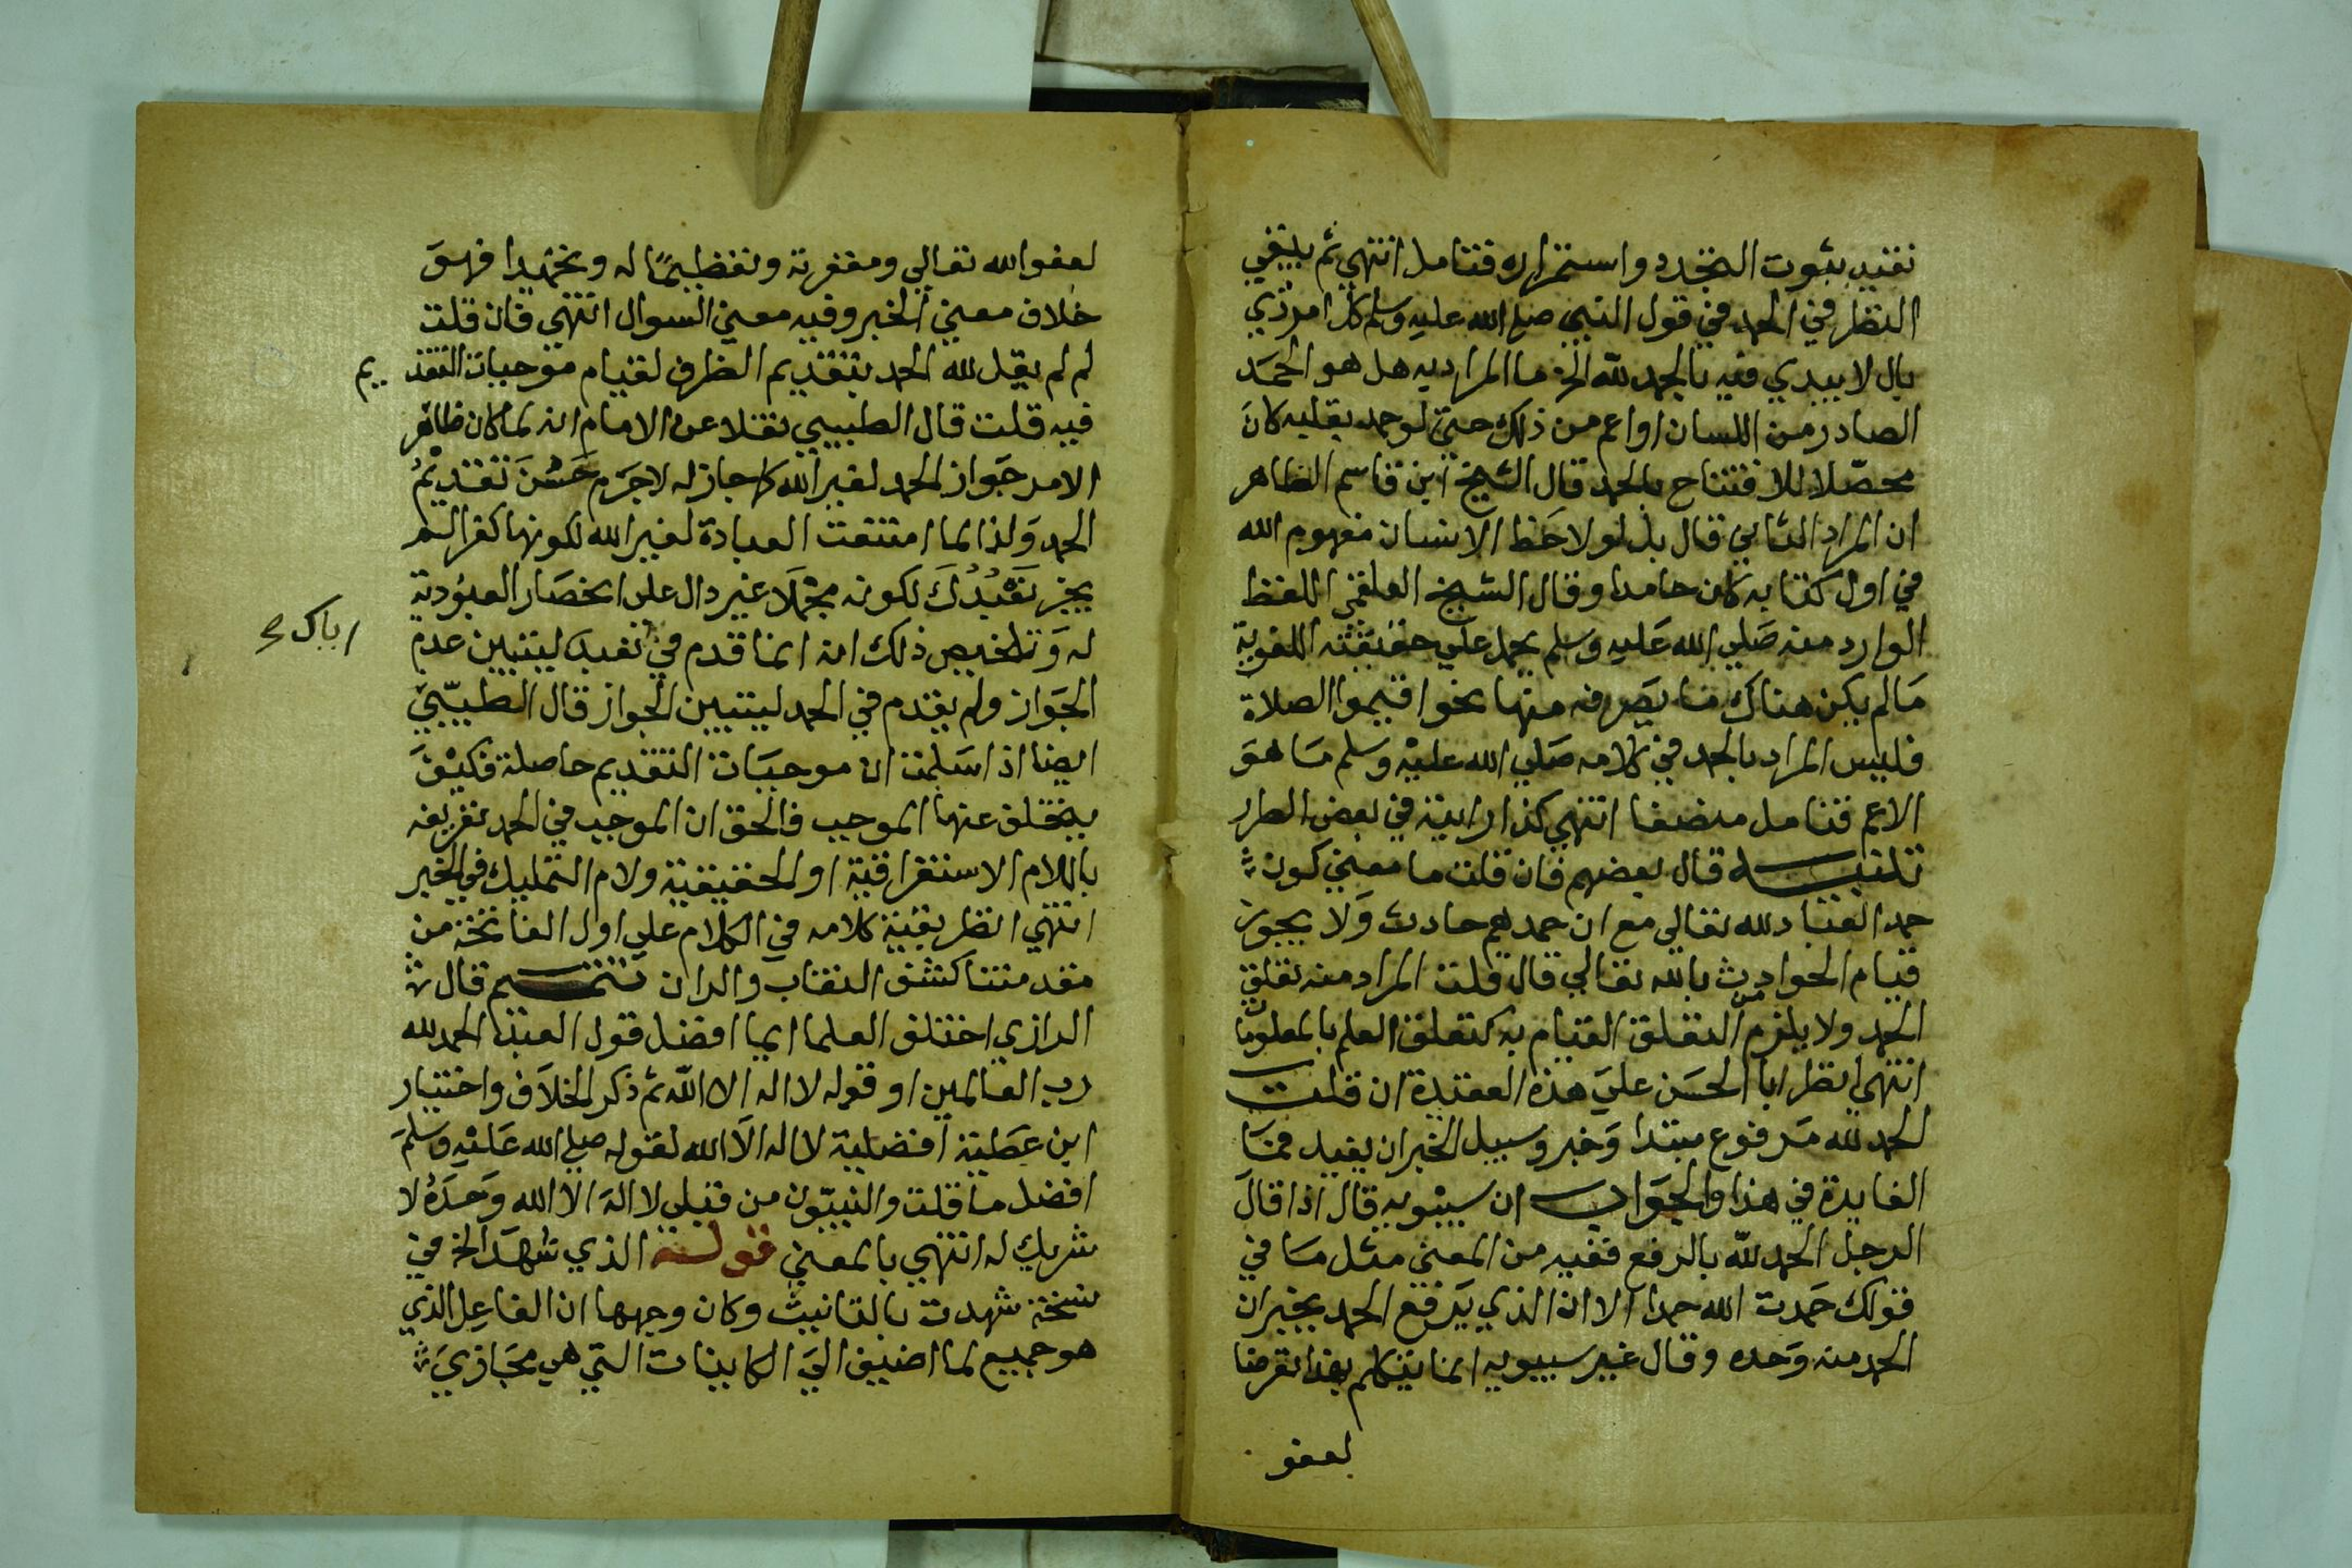 تفيد بثبوت التجدد واستمراره فتأمل انتهي ثم ينبغي
النظر في الحمد في قول النبي صلي الله عليه وسلم كل امر ذي
بال لا يبدي فيه بالحمد لله الخ ما المراد به هل هو الحمَد
الصادر من اللسان او اعم من ذلك حتي لو حمد بقلبه كانَ
محصّلا للافتتاح بالحمد قال الشيخ ابن قاسم الظاهر
ان المراد الثاني قال بل لو لاحَظ الانسان مفهوم الله
في اول كتابه كان حامدا وقال الشيخ العلقمي اللفظ
الوارد منه صَلي الله عَليه وسلم يحمل علي حقيقته اللغوية
مَا لم يكن هناك ما يصَرفه عنها نحو اقيموا الصلاة
فليس المراد بالحمد في كلامه صَلي الله عليْه وسَلم مَا هوَ
الاعم فتامل منصفا انتهي كذا رايته في بعض الطرر
تنبيه قال بعضهم فان قلت ما معني كون
حمد العباد لله تعالي مع ان حمدهم حادث وَلا يجوز
قيام الحوادث بالله تعالي قال قلت المراد منه تعلق
الحمد ولا يلزم من التعلق القيام به كتعلق العلم بالمعلومات
انتهي انظر ابا الحسَن عليَ هذه العقيدة ان قلت
الحمد لله مَرفوع مبتدا وَخبر وسبيل الخبر ان يفيد فمَا
الفايدة في هذا والجوَاب ان سيبْويه قال اذا قالَ
الرجل الحمد لله بالرفع ففيه من المعني مثل مَا في
قولك حَمدت الله حمدا الا ان الذي يَرفع الحمد يخبر ان
الحمد منه وَحده وقال غير سيبويه انما يتكلم بهذا تعرضا
لعفو
لعفو الله تعالي ومغفرته وتعظيمًا له وتمجيدا فهوَ
خلاف معني الخبر وفيه معني السوال انتهي فان قلت
لم لم يقل لله الحمد بتقديم الظرف لقيام موجبات التقديم
فيه قلت قال الطيبي نقلا عن الامام انه لما كان ظاهر
الامر جَواز الحمد لغير الله كما جاز له لا جرَم حَسُنَ تقديمُ
الحمد وَلذا لما امتنعت العبادة لغير الله لكونها كفرا لم
يجز نَعْبُدُكَ لكونه محتملَا غير دال علي انحصَار العبُودية
له وَتلخيص ذلك انه انما قدم في نعبد ليتبين عدم
اياك صح
الجَواز ولم يقدم في الحمد ليتبين الجواز قال الطيبّي
ايضا اذا سَلمت ان موجبَات التقديم حاصلة فكيْفَ
يتخلف عنها الموجب فالحق ان الموجب في الحمد تعريفه
باللام الاستغراقية او الحقيقية ولام التمليك في الخبر
انتهي انظر بقية كلامه في الكلام علي اول الفاتحة من
مقدمتنا كشف النقاب والران تتميم قال
الرازي اختلف العلما ايما افضل قول العبد الحمد لله
رب العالمين او قوله لا اله الا الله ثم ذكر الخلَاف واختيار
ابن عَطية افضلية لا اله الَا الله لقوله صلي الله عَليْه وسلمَ
افضل ما قلت والنبيّون من قبلي لا الهَ الَا الله وَحدَهُ لا
شريك له انتهي بالمعني قوله الذي شهدَ الخ في
نسخة شهدت بالتانيث وكان وجهها ان الفاعِل الذي
هو جميع لما اضيف اليَ الكاينات التي هي مجَازيَ